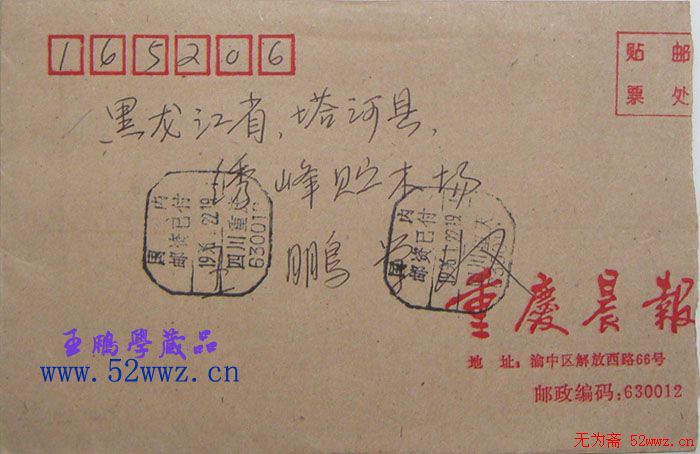 165206
贴 邮
票 处
黑龙江省、塔河县,
绣峰贮木场
王鹏学
国内
邮资已付
四川重庆
630012
国内
邮资已付
重慶晨報
地 址:渝中区解放西路66号
邮政编码:630012
王鵬學藏品
www.52wwz.cn
无为斋 52wwz.cn